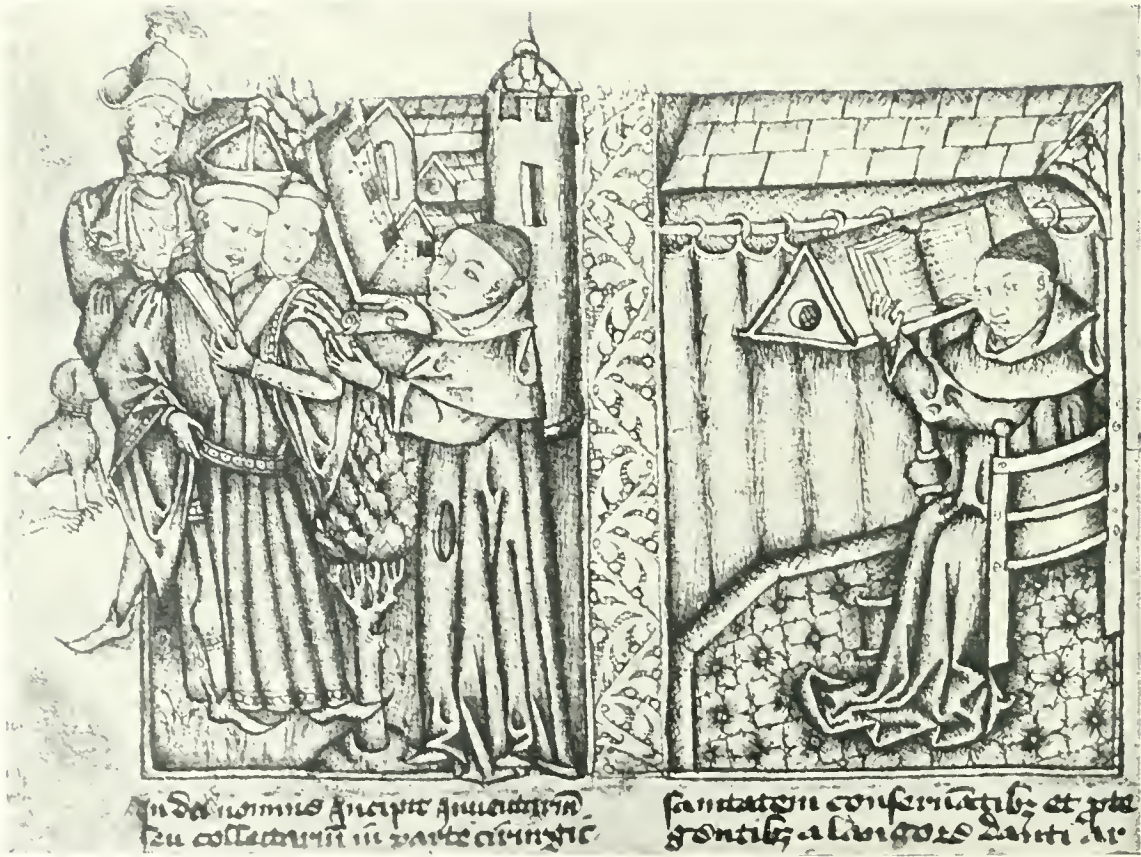 In dei nomine Incipit Inventariũ
seu collectariũ in parte cirurgic·
sanitatem conseruãtibꝫ et ꝓte
gentibꝫ a langore danti ar